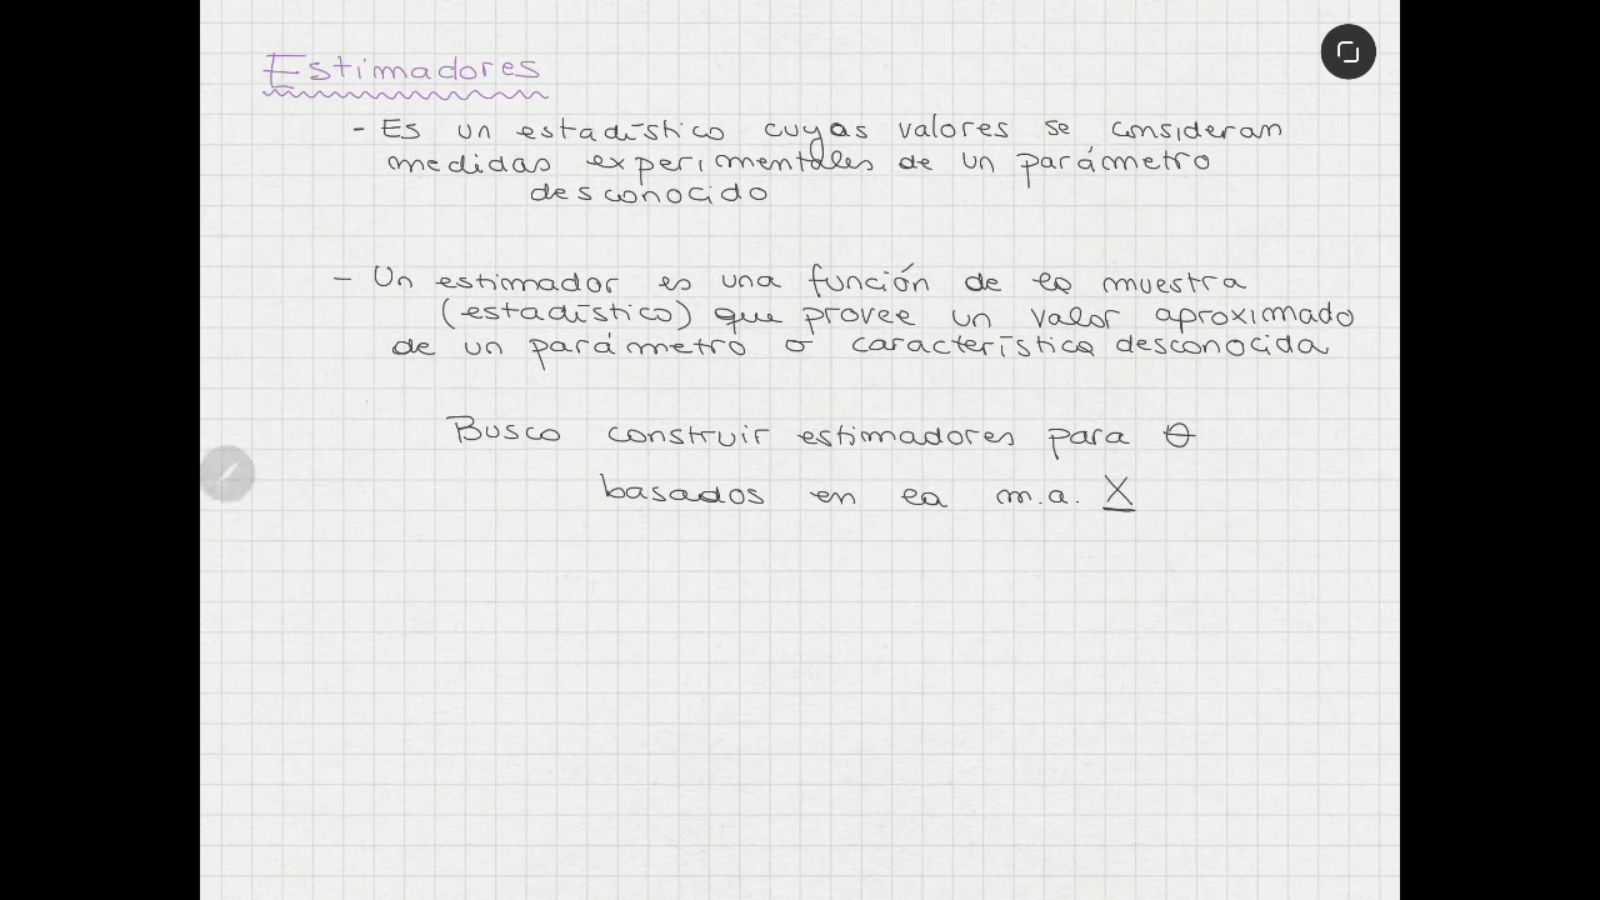 Estimadores
- Es un estadístico cuyas valores se consideran
medidas experimentales de un parámetro
desconocido
- Un estimador es una función de la muestra
(estadístico) que provee un valor aproximado
de un parámetro o característica desconocida
Busco construir estimadores para θ
basados en la m.a. X